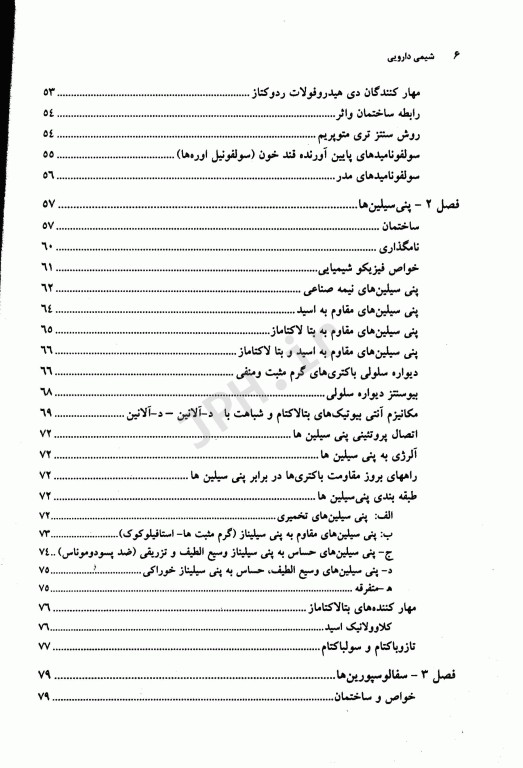 ۶ شیمی دارویی
مهار کنندگان دی هیدروفولات ردوکتاز ........ ۵۳
رابطه ساختمان واثر ........ ۵۴
روش سنتز تری متوپریم ........ ۵۴
سولفونامیدهای پایین آورنده قند خون (سولفونیل اوره‌ها) ........ ۵۵
سولفونامیدهای مدر ........ ۵۶
فصل ۲ - پنی‌سیلین‌ها ........ ۵۷
ساختمان ........ ۵۷
نامگذاری ........ ۶۰
خواص فیزیکو شیمیایی ........ ۶۱
پنی سیلین‌های نیمه صناعی ........ ۶۲
پنی سیلین‌های مقاوم به اسید ........ ۶۴
پنی سیلین‌های مقاوم به بتا لاکتاماز ........ ۶۵
پنی سیلین‌های مقاوم به اسید و بتا لاکتاماز ........ ۶۶
دیواره سلولی باکتری‌های گرم مثبت ومنفی ........ ۶۶
بیوسنتز دیواره سلولی ........ ۶۸
مکانیزم آنتی بیوتیک‌های بتالاکتام و شباهت با د-آلانین – د-آلانین ........ ۶۹
اتصال پروتئینی پنی سیلین ها ........ ۷۲
آلرژی به پنی سیلین ها ........ ۷۲
راههای بروز مقاومت باکتری‌ها در برابر پنی سیلین ها ........ ۷۲
طبقه بندی پنی‌سیلین ها ........ ۷۲
الف: پنی سیلین‌های تخمیری ........ ۷۲
ب: پنی سیلین‌های مقاوم به پنی سیلیناز (گرم مثبت ها- استافیلوکوک) ........ ۷۳
ج- پنی سیلین‌های حساس به پنی سیلیناز وسیع الطیف و تزریقی (ضد پسودوموناس) .. ۷۴
د- پنی سیلین‌های وسیع الطیف، حساس به پنی سیلیناز خوراکی ........ ۷۵
ه -متفرقه ........ ۷۵
مهار کننده‌های بتالاکتاماز ........ ۷۶
کلاوولانیک اسید ........ ۷۶
تازوباکتام و سولباکتام ........ ۷۷
فصل ۳ - سفالوسپورین‌ها ........ ۷۹
خواص و ساختمان ........ ۷۹
JPH.ir